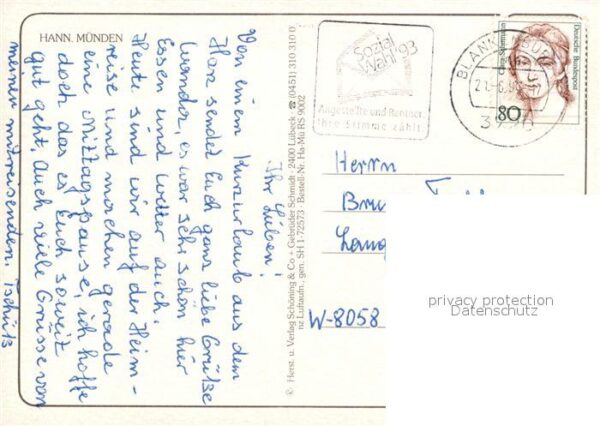 HANN. MÜNDEN
Ihr Lieben!
Von einem Kurzurlaub aus dem
Harz sendet Euch ganz liebe Grüße
es war sehr schön hier
Essen und Wetter auch.
Heute sind wir auf der Heim-
reise und machen gerade
eine Mittagspause, ich hoffe
doch das es Euch soweit
gut geht, Auch viele Grüsse von
meinen mitreisenden. Tschüß
© Herst. u. Verlag Schöning & Co + Gebrüder Schmidt · 2400 Lübeck · ☎ (0451) 310 310
nz Luftaufn., gen. SH 1-72573 · Bestell-Nr. Ha-Mü RS 9002
Sozial
Wahl '93
Angestellte und Rentner:
Ihre Stimme zählt
3720
Deutsche Bundespost
80
Herrn
W-8058
privacy protection
Datenschutz